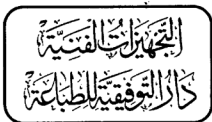 التَّجْهِيزَاتُ الفَنِيَّة
دَارُ التَّوفِيقِيَّةِ لِلطِّبَاعَةِ